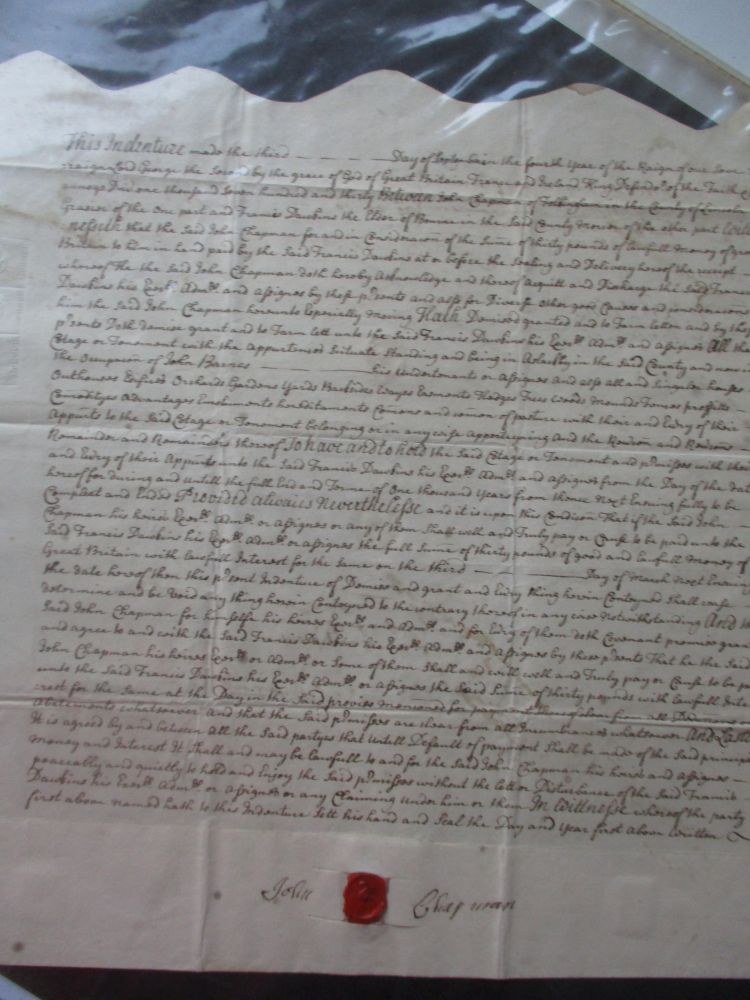 This Indenture made the third Day of September in the fourth Year of the Raign of our Sove
raigne Lord George the Second by the grace of God of Great Britain France and Ireland King Defendr of the Faith &
annoqe Dni one thousand Seven hundred and thirty Between John Chapman of in the County of Lincoln
Grasier of the One part and Francis Dawkins the Elder of Bourn in the Said County of the other part Witt
nesseth that the Said John Chapman for and in Consideracon of the Sume of thirty pounds of lawfull Money of great
Britain to him in hand paid by the Said Francis Dawkins at or before the Sealing and Delivery hereof the receipt
whereof the the Said John Chapman doth hereby Acknowledge and thereof Acquitt and Discharge the Said Francis
Dawkins his Exors Admrs and assignes by these prsents and also for Diverse other good Causes and consideracons
him the Said John Chapman hereunto Especially moving Hath Demised granted and to Farm letten and by these
prsents Doth demise grant and to Farm lett unto the Said Francis Dawkins his Exors Admrs and assignes All that
Cotage or Tenement with the appurtences Situate Standing and being in Aslackby in the Said County and now in
the Occupacon of John Barnes his Undertenant or Assignes And also all and Singular houses
Outhouses Edifices Orchards Gardens Yards Backsides Wayes Easments Hadges Trees Woods Mounds Fences proffitts
Comodityes Advantages Emolumts hereditaments Comons and comon of pasture with their and Every of their
Appurts to the Said Cotage or Tenement belonging or in any wise Apperteyning And the Revercon and Revercons
Remainder and Remainders thereof To have and to hold the Said Cotage or Tenement and prmisses with their
and Every of their Appurts unto the Said Francis Dawkins his Exors Admrs and assignes From the Day of the date
hereof for during and Untill the full End and Terme of One thousand Years from thence Next Ensuing fully to be
Compleat and Ended Provided alwaies Neverthelesse and it is upon this Condicon That if the Said John
Chapman his heires Exors Admrs or assignes or any of them Shall well and Truly pay or Cause to be paid unto the
Said Francis Dawkins his Exors Admrs or assignes the full Sume of thirty pounds of good and lawfull Money of
Great Britain with lawfull Interest for the same on the third Day of March Next Ensuing
the date hereof then this prsent Indenture of Demise and grant and Every thing herein Conteyned Shall cease
determine and be Void any thing herein Conteyned to the contrary thereof in any wise Notwithstanding And the
Said John Chapman for himselfe his heires Exors and Admrs and for Every of them doth Covenant promise grant
and agree to and with the Said Francis Dawkins his Exors Admrs and Assignes by these prsents That he the Said
John Chapman his heires Exors or Admrs or Some of them Shall and will well and Truly pay or Cause to be paid
unto the Said Francis Dawkins his Exors Admrs or assignes the Said Sume of thirty pounds with lawfull Inte
rest for the Same at the Day in the Said proviso mencioned for payment clear from all Deductions or
Abatements whatsoever And that the Said prmisses are clear from all Incumbrances whatsoever And Lastly
It is agreed by and between all the Said partyes that Untill Default of payment Shall be made of the Said principall
Money and Interest It Shall and may be lawfull to and for the Said John Chapman his heires and assignes
peaceably and quietly to hold and Enjoy the Said prmisses without the lett or Disturbance of the Said Francis
Dawkins his Exors Admrs or assignes or any Claiming Under him or them In Wittnesse whereof the party
first above named hath to this Indenture Sett his hand and Seal the Day and Year first above written
John Chapman